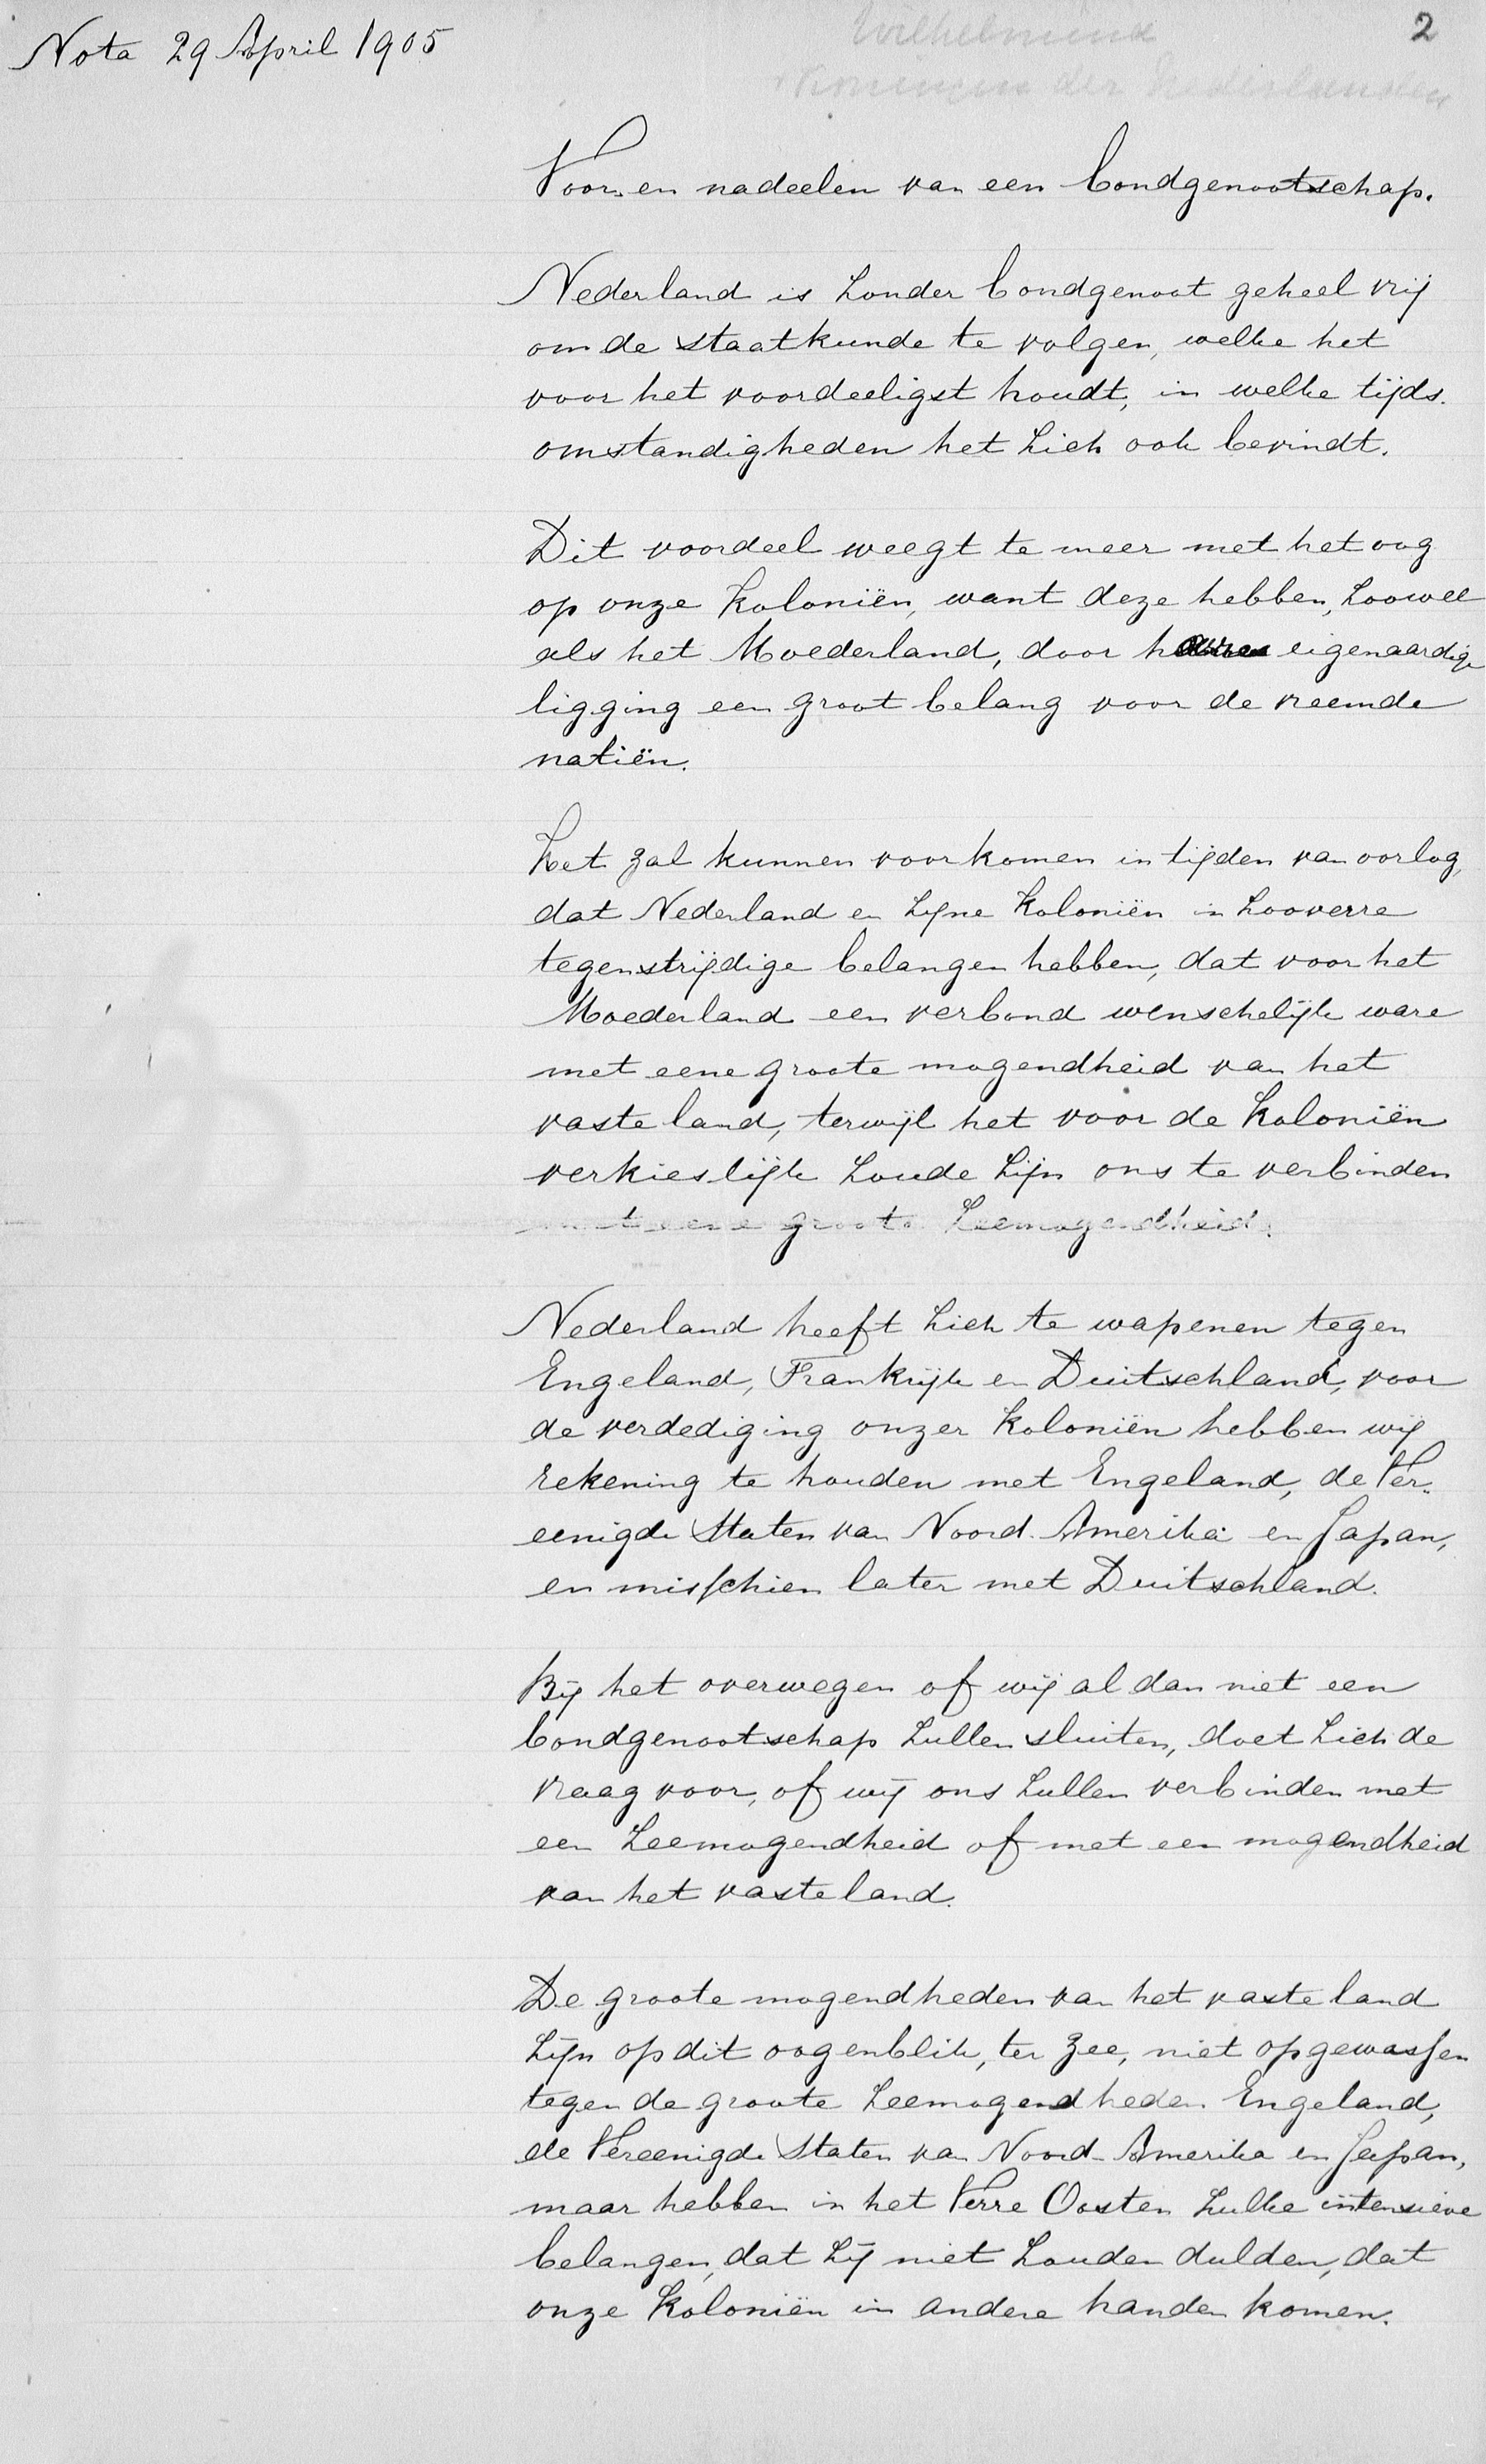 Nota 29 April 1905
2
Wilhelmina
Koningin der Nederlanden
Voor- en nadeelen van een bondgenootschap.
Nederland is zonder bondgenoot geheel vrij
om de staatkunde te volgen, welke het
voor het voordeeligst houdt, in welke tijds-
omstandigheden het zich ook bevindt.
Dit voordeel weegt te meer met het oog
op onze Koloniën, want deze hebben, zoowel
als het Moederland, door eigenaardige
ligging een groot belang voor de vreemde
natiën.
Het zal kunnen voorkomen in tijden van oorlog,
dat Nederland en zijne Koloniën in zooverre
tegenstrijdige belangen hebben, dat voor het
Moederland een verbond wenschelijk ware
met eene groote mogendheid van het
vaste land, terwijl het voor de Koloniën
verkieslijk zoude zijn ons te verbinden
met eene groote zeemogendheid.
Nederland heeft zich te wapenen tegen
Engeland, Frankrijk en Duitschland, voor
de verdediging onzer Koloniën hebben wij
rekening te houden met Engeland, de Ver-
eenigde Staten van Noord-Amerika en Japan,
en misschien later met Duitschland.
Bij het overwegen of wij al dan niet een
bondgenootschap zullen sluiten, doet zich de
vraag voor, of wij ons zullen verbinden met
een zeemogendheid of met een mogendheid
van het vasteland.
De groote mogendheden van het vaste land
zijn op dit oogenblik, ter zee, niet opgewassen
tegen de groote zeemogendheden Engeland,
de Vereenigde Staten van Noord-Amerika en Japan,
maar hebben in het Verre Oosten zulke intensieve
belangen, dat zij niet zouden dulden, dat
onze Koloniën in andere handen komen.